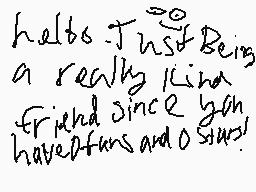 hello. Just Being
a really kind
friend since you
have 0 fans and 0 stars!